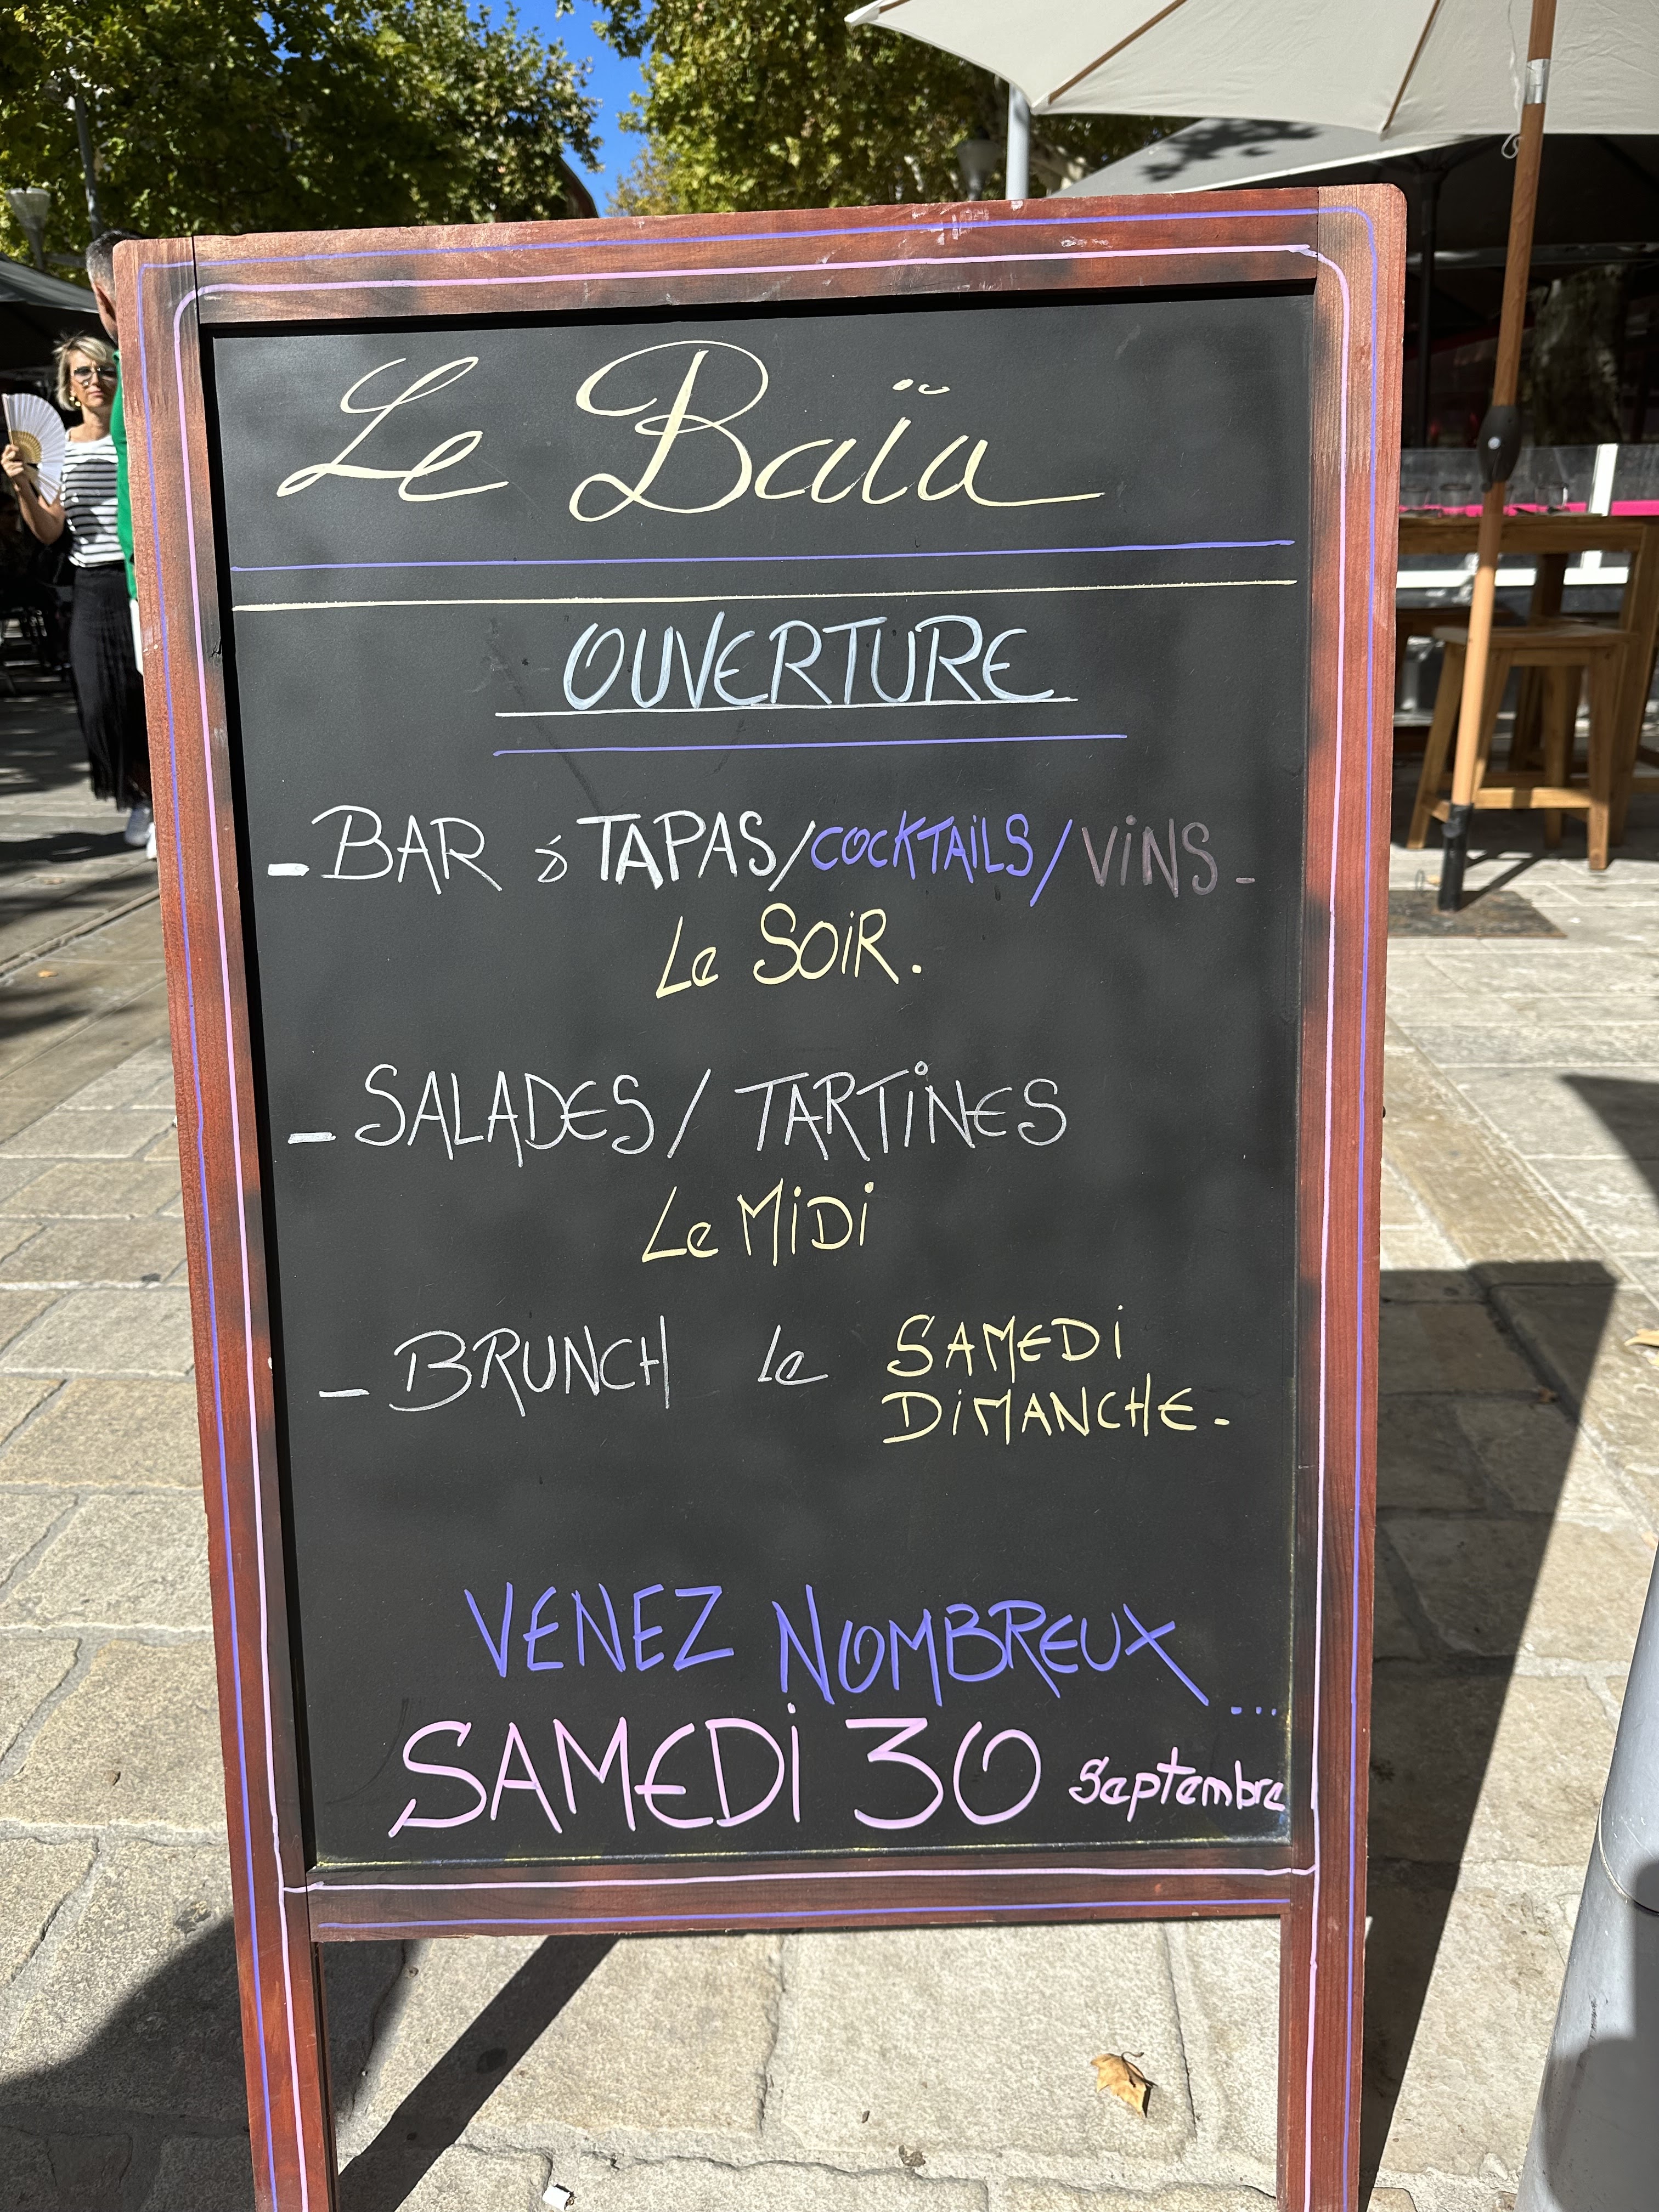 Le Baïa
OUVERTURE
- BAR à TAPAS/COCKTAILS/VINS -
Le SOIR.
- SALADES / TARTINES
Le MIDI
- BRUNCH le SAMEDI
DIMANCHE -
VENEZ NOMBREUX...
SAMEDI 30 septembre